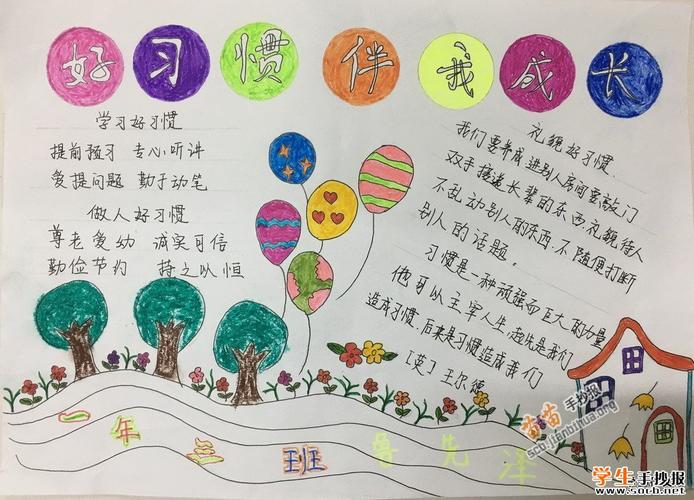 好习惯伴我成长
学习好习惯
提前预习 专心听讲
爱提问题 勤于动笔
做人好习惯
尊老爱幼 诚实可信
勤俭节约 持之以恒
礼貌好习惯
我们要养成进别人房间要敲门
双手接递长辈的东西,礼貌待人
不乱动别人的东西,不随便打断
别人的话题。
习惯是一种顽强而巨大的力量
他可以主宰人生,起先是我们
造成习惯,后来是习惯造成我们
[英] 王尔德
一年三班 鲁先泽
苗苗手抄报
scb.jianbihua.org
学生手抄报
www.socb.net